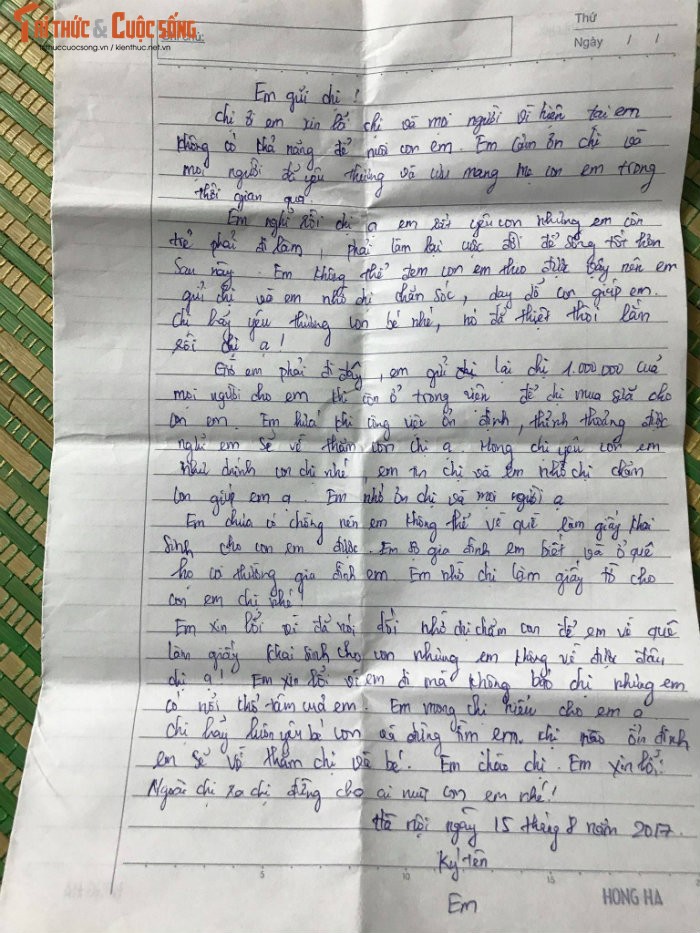 TRI THỨC & CUỘC SỐNG
trithuccuocsong.vn / kienthuc.net.vn
Thứ
Ngày / /
Em gửi chị !
Chị ơi em xin lỗi chị và mọi người vì hiện tại em
không có khả năng để nuôi con em. Em cảm ơn chị và
mọi người đã yêu thương và cưu mang mẹ con em trong
thời gian qua.
Em nghĩ rồi chị ạ em rất yêu con nhưng em còn
trẻ phải đi làm, phải làm lại cuộc đời để sống tốt hơn
sau này. Em không thể đem con em theo được vậy nên em
gửi chị và em nhờ chị chăm sóc, dạy dỗ con giúp em.
Chị hãy yêu thương con bé nhé, nó đã thiệt thòi lắm
rồi chị ạ!
Giờ em phải đi đây, em gửi lại chị 1.000.000 của
mọi người cho em khi còn ở trong viện để chị mua sữa cho
con em. Em hứa khi công việc ổn định, thỉnh thoảng được
nghỉ em sẽ về thăm con chị ạ. Mong chị yêu con em
như chính con chị nhé, em tin chị và em nhờ chị chăm
con giúp em ạ. Em nhớ ơn chị và mọi người ạ
Em chưa có chồng nên em không thể về quê làm giấy khai
sinh cho con em được. Em sợ gia đình em biết và ở quê
họ cười gia đình em. Em nhờ chị làm giấy tờ cho
con em chị nhé
Em xin lỗi vì đã nói dối nhờ chị chăm con để em về quê
làm giấy khai sinh cho con nhưng em không về được đâu
chị ạ! Em xin lỗi vì em đi mà không báo chị nhưng em
có nỗi khổ tâm của em. Em mong chị hiểu cho em ạ
Chị hãy luôn yêu bé con và đừng tìm em. khi nào ổn định
em sẽ về thăm chị và bé. Em chào chị. Em xin lỗi!
Ngoài chị ra chị đừng cho ai nuôi con em nhé!
Hà nội ngày 15 tháng 8 năm 2017.
Ký tên
5 10 15
HONG HA
Em